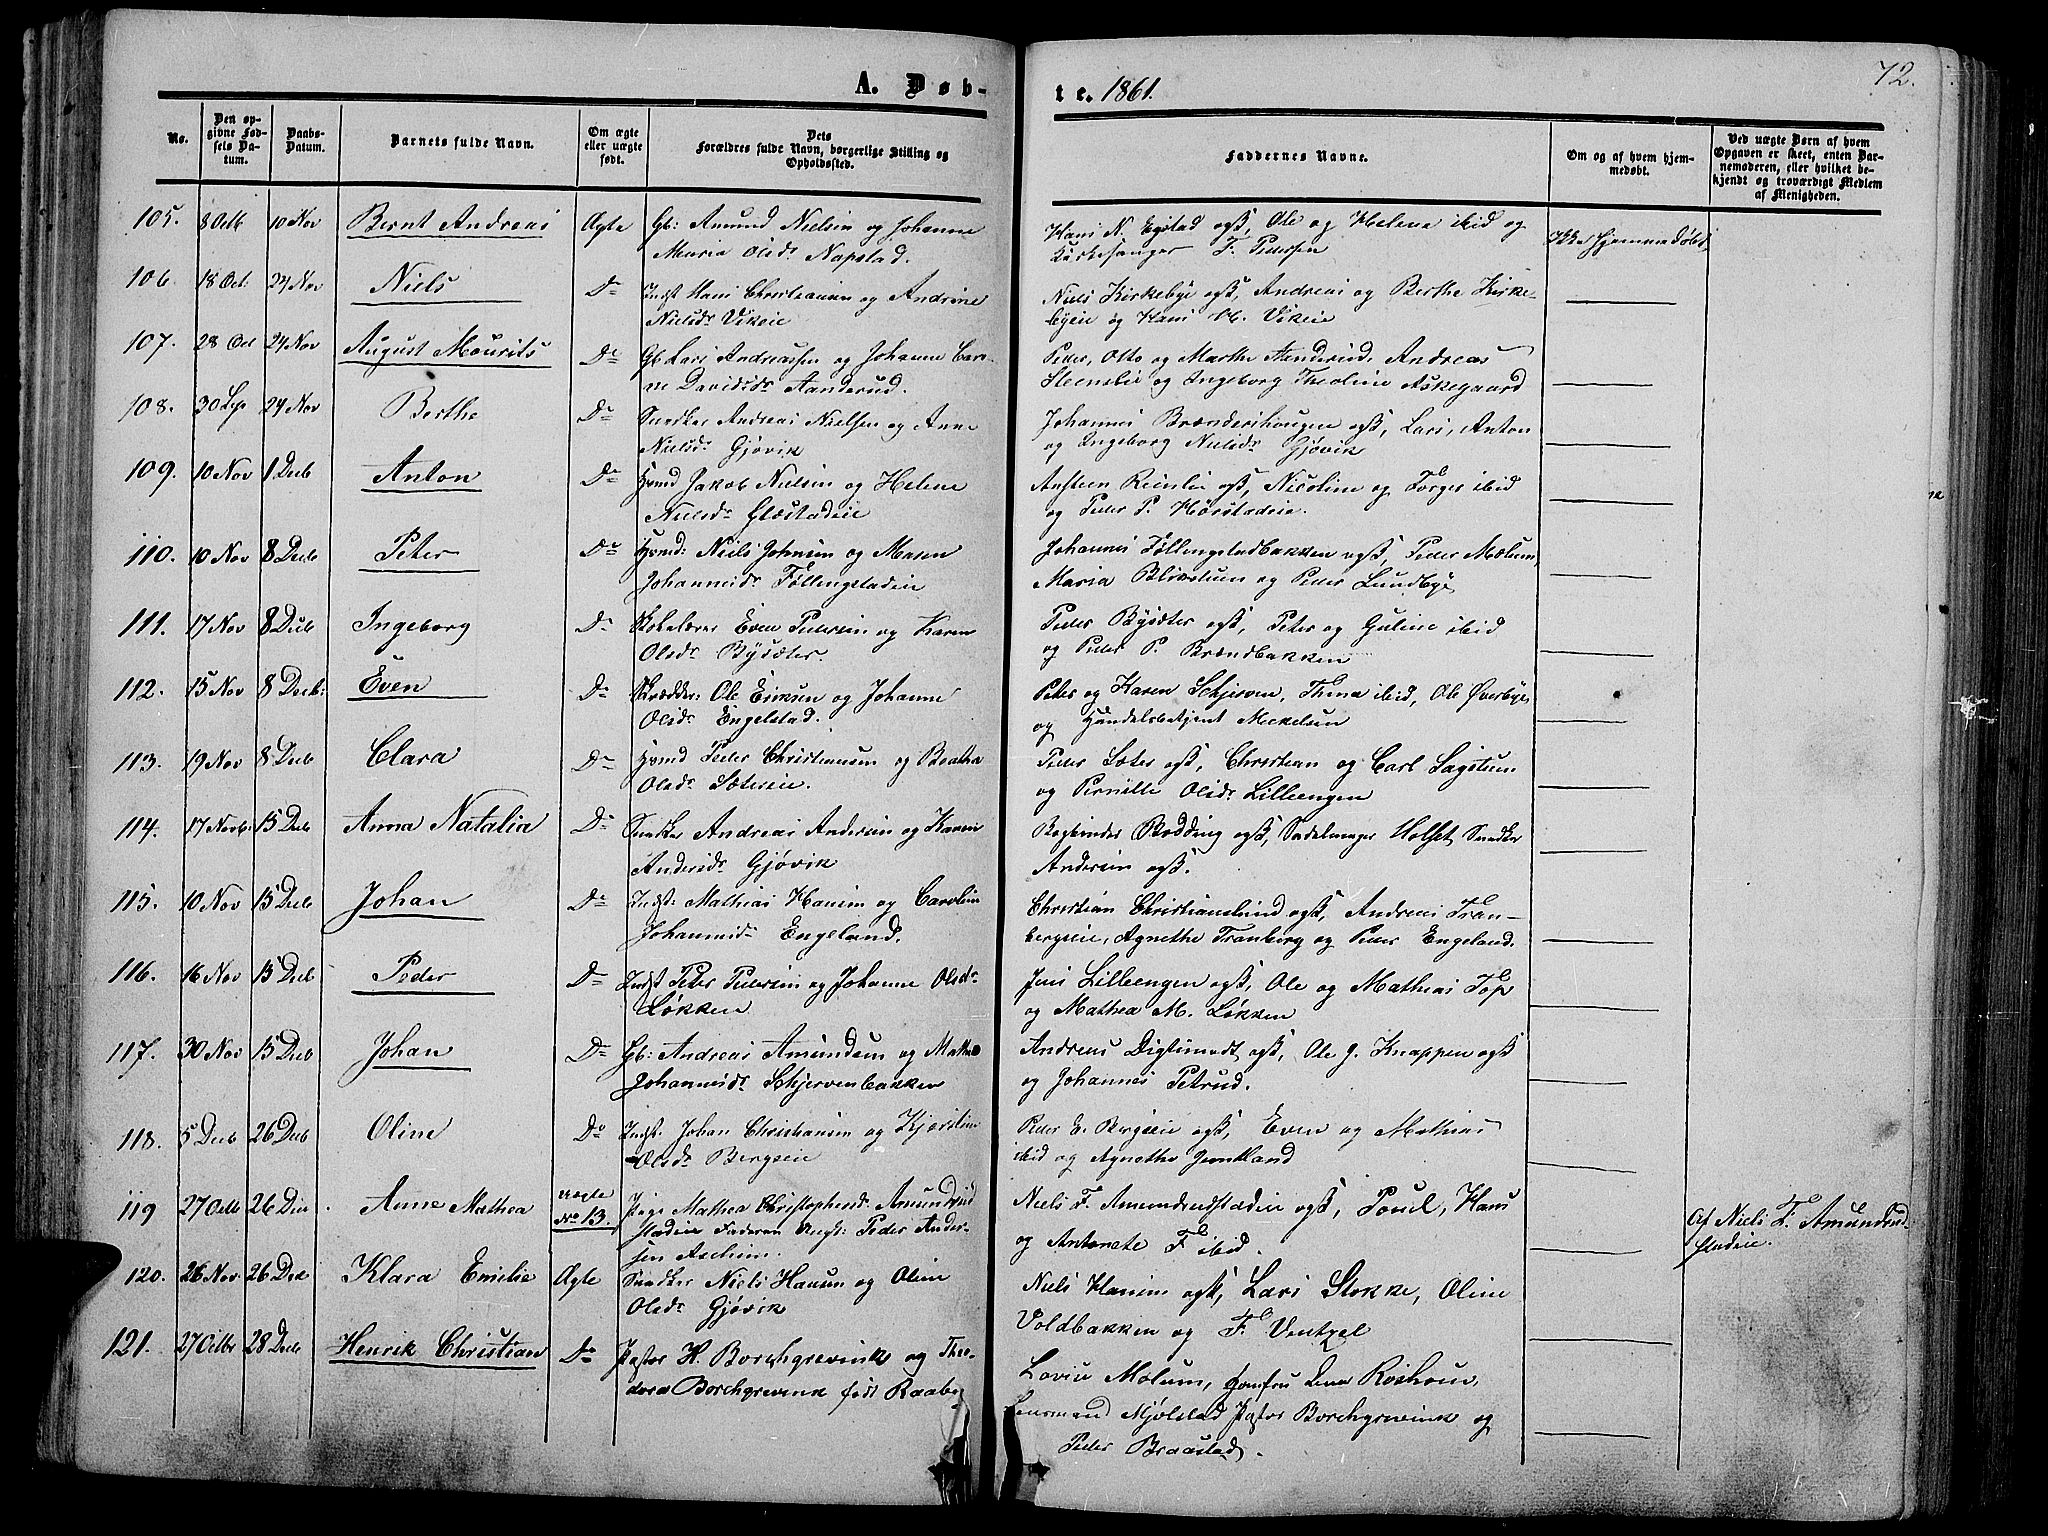 A. Døb-
te. 1861.
72.
No.
Den op-
givne Fød-
sels Da-
tum.
Daabs-
Datum.
Barnets fulde Navn.
Om ægte
eller uægte
født.
Dets
Forældres fulde Navn, borgerlige Stilling og
Opholdssted.
Faddernes Navne.
Om og af hvem hjem-
medøbt.
Ved uægte Børn af hvem
Opgaven er skeet, enten Bar-
nemoderen, eller hvilket be-
kjendt og troværdigt Medlem
af Menigheden.
105. 8 Octb 10 Nov Bernt Andreas Ægte Gb: Amund Nielsen og Johanne
Maria Olsdr Napstad.
Hans N. Egstad ogß, Ole og Helena ibid og
Kirkesanger F. Pedersen
Ikke hjemmedøbt
106. 18 Oct: 24 Nov Niels Do Indst Hans Christiansen og Andrine
Nielsdr Vikeie
Niels Kirkebye ogß, Andreas og Berthe Kirke-
byeie og Hans H. Vikeie
107. 28 Oct 24 Nov August Mourits Do Gb Lars Andreassen og Johanne Car-
ne Davidsdr Aanderud.
Peder, Otto og Marthe Aanderud, Andreas
Steenslie og Ingeborg Theoline Askegaard
108. 30 Sep 24 Nov Berthe Do Snedker Andreas Nielsen og Anne
Nielsdr Gjøvik
Johannes Brændershougen ogß, Lars, Anton
og Ingeborg Nielsdr Gjøvik
109. 10 Nov 1 Decb Anton Do Hsmd Jakob Nielsen og Helene
Nielsdr Glæstadeie
Austeen Reinlie ogß, Nicoline og Torger ibid
og Peder P. Hørstadeie.
110. 10 Nov 8 Decb Peter Do Hsmd: Niels Johnsen og Maren
Johannesdr Føllingstadeie
Johannes Føllengstadbakken ogß, Peder Mælum,
Maria Blixelum og Peder Lundbye
111. 17 Nov 8 Decb Ingeborg Do Skolelærer Even Pedersen og Karen
Olsdr Bysæter.
Peder Bysæter ogß, Peter og Guline ibid
og Peder P. Brændbakken
112. 15 Nov 8 Decb: Even Do Skrædder: Ole Eriksen og Johanne
Olsdr Engelstad.
Peter og Karen Schjerven, Thina ibid, Ole Øverbye
og Handelsbetjent Mickelsen
113. 19 Nov 8 Decb Clara Do Hsmd Peder Christiansen og Beatha
Olsdr Sætereie.
Peder Sæter ogß, Christian og Carl Sagstuen
og Pernille Olsdr Lilleengen
114. 17 Novb: 15 Decb Anna Natalia Do Snedker Andreas Andersen og Karen
Andersdr Gjøvik
Bogbinder Rodding ogß, Sadelmager Holset Snedker
Andersen ogß.
115. 10 Nov 15 Decb Johan Do Indst: Mathias Hansen og Caroline
Johannesdr Engeland.
Christian Christianslund ogß, Andreas Tran-
bergseie, Agnethe Tranberg og Peder Engeland.
116. 16 Nov 15 Decb Peder Do Indst Peder Pedersen og Johanne Olsdr
Løkken
Jens Lilleengen ogß, Ole og Mathias Top
og Mathea M. Løkken
117. 30 Nov 15 Decb Johan Do Gb: Andreas Amundsen og Mathea
Johannesdr Schjervenbakken
Andreas Digtimodt ogß, Ole J. Knappen ogß
og Johannes Petrud.
118. 5 Decb 26 Decb Oline Do Indst: Johan Christiansen og Kjerstine
Olsdr Bergseie
Peder E. Bergseie ogß, Even og Mathias
ibid og Agnethe Grønland
119 27 Octb 26 Dec Anne Mathea uægte
No 13. Pige Mathea Christophersdr Amundrud
stadeie Faderen Ungk: Peder Ander-
sen Aschim.
Niels F. Amundrudstadeie ogß, Poul, Hans
og Antonete F. ibid.
Af Niels F. Amundrud-
stadeie.
120. 26 Nov 26 Dec Klara Emelie Ægte Snedker Niels Hansen og Oline
Olsdr Gjøvik
Niels Hansen ogß, Lars Stokke, Oline
Voldbakken og F. Ventzel
121. 27 Octbr 28 Decb Henrik Christian Do Pastor H. Borchgrevink og Theo-
dora Borchgrevink født Raabye
Lovise Molum, Jomfru Dina Rosholm,
Lensmand Mjølstad Pastor Borchgrevink og
Peder Braastad.